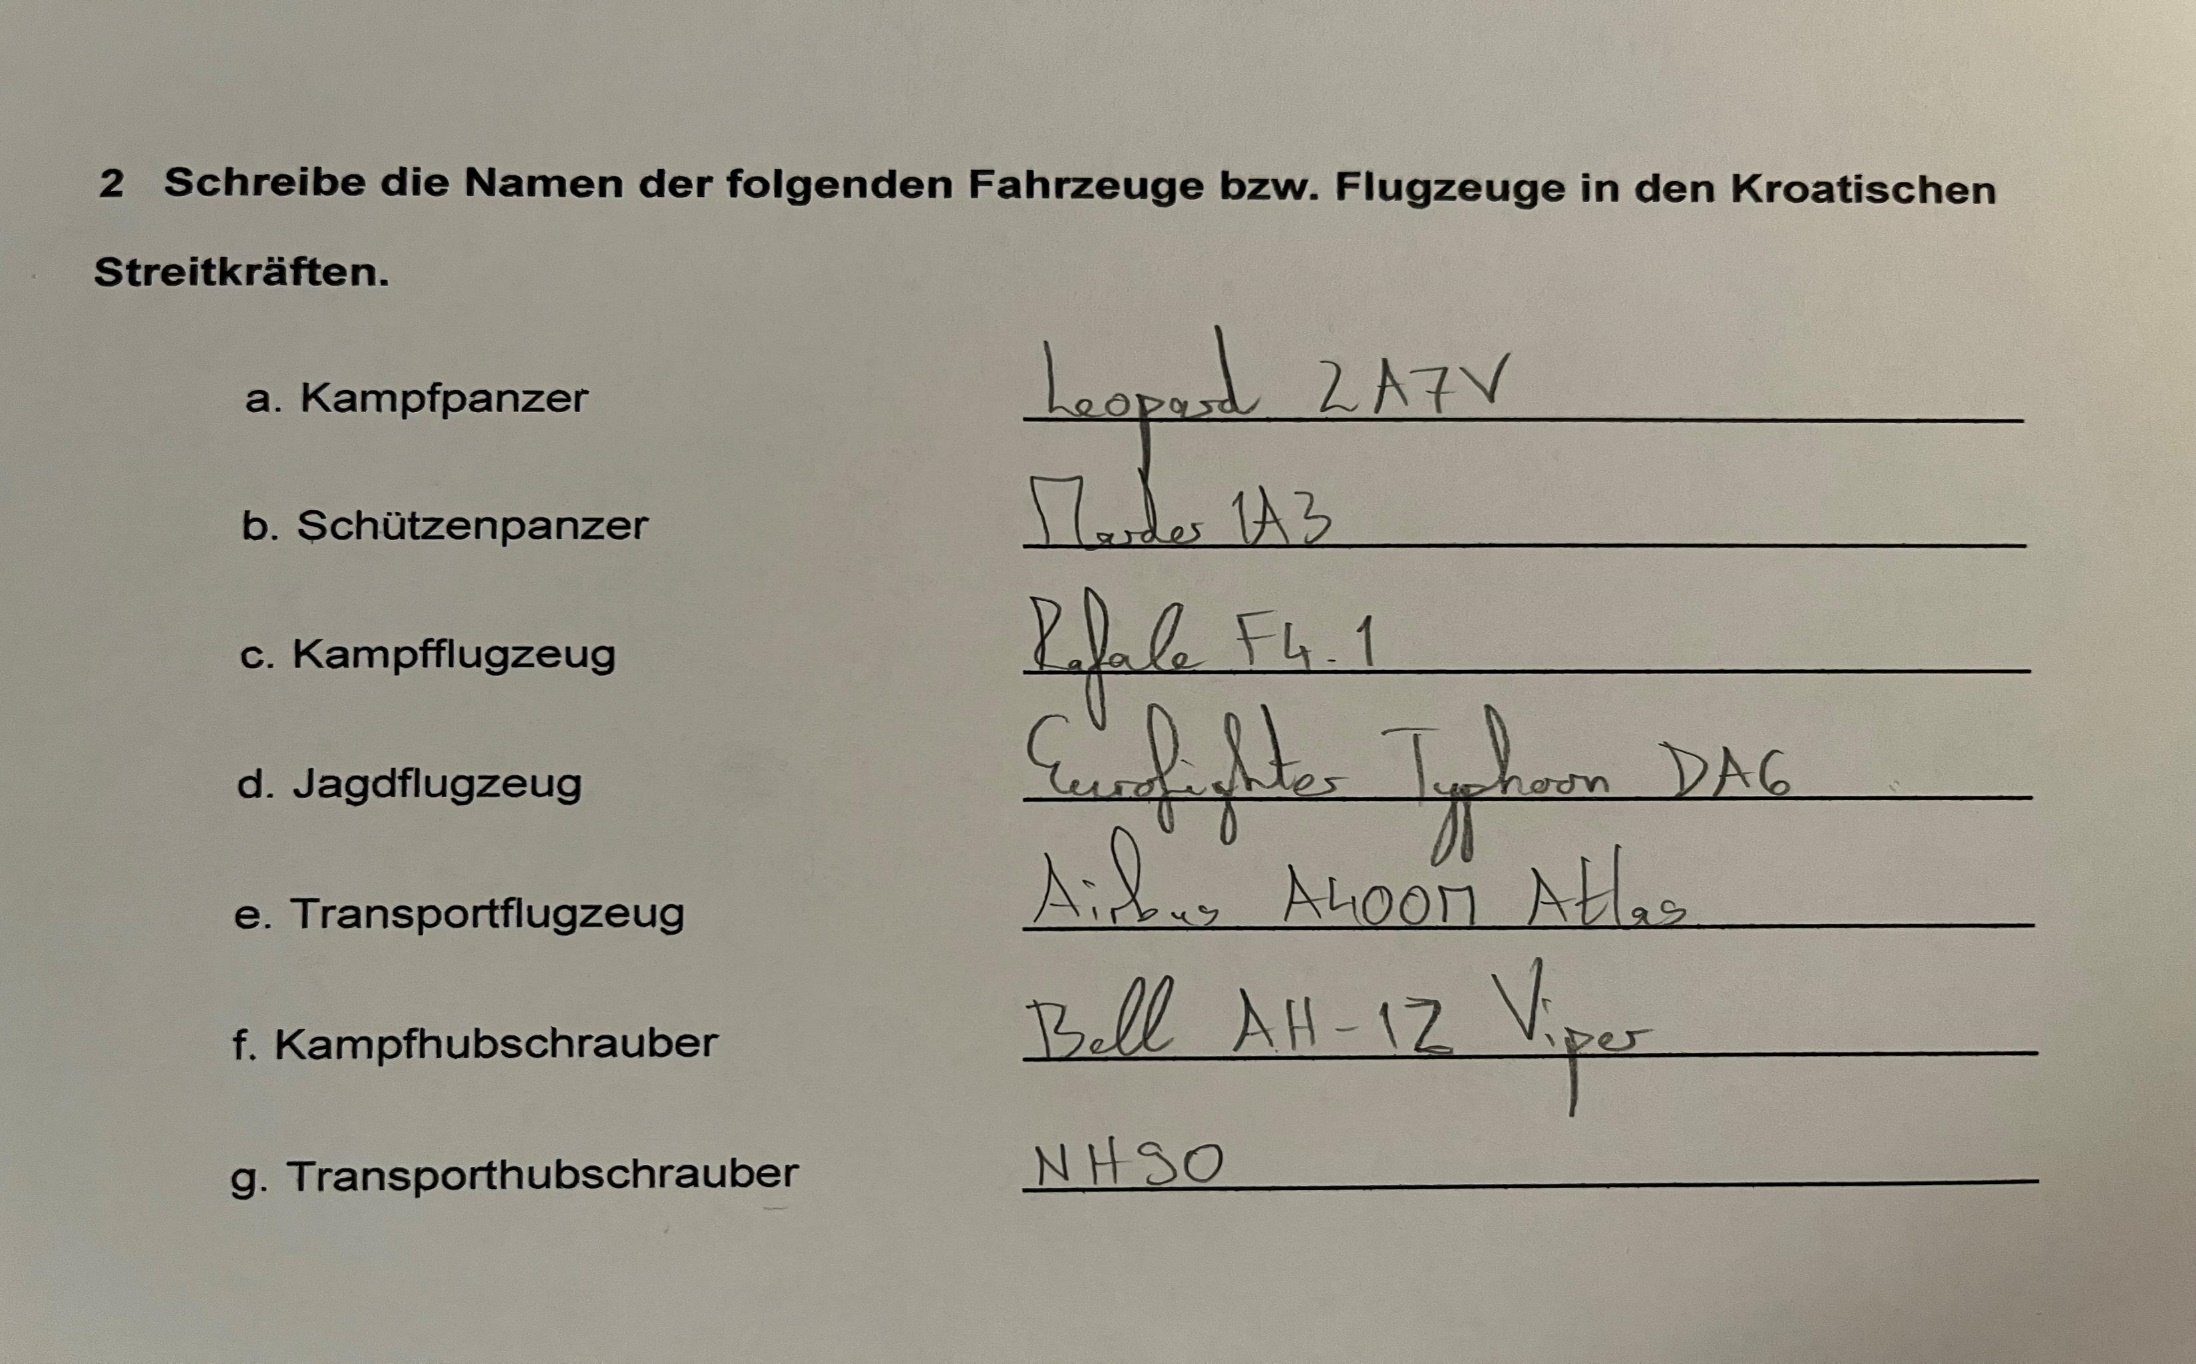 2 Schreibe die Namen der folgenden Fahrzeuge bzw. Flugzeuge in den Kroatischen
Streitkräften.
a. Kampfpanzer Leopard 2A7V
b. Schützenpanzer Marder 1A3
c. Kampfflugzeug Rafale F4.1
d. Jagdflugzeug Eurofighter Typhoon DA6
e. Transportflugzeug Airbus A400M Atlas
f. Kampfhubschrauber Bell AH-1Z Viper
g. Transporthubschrauber NH90